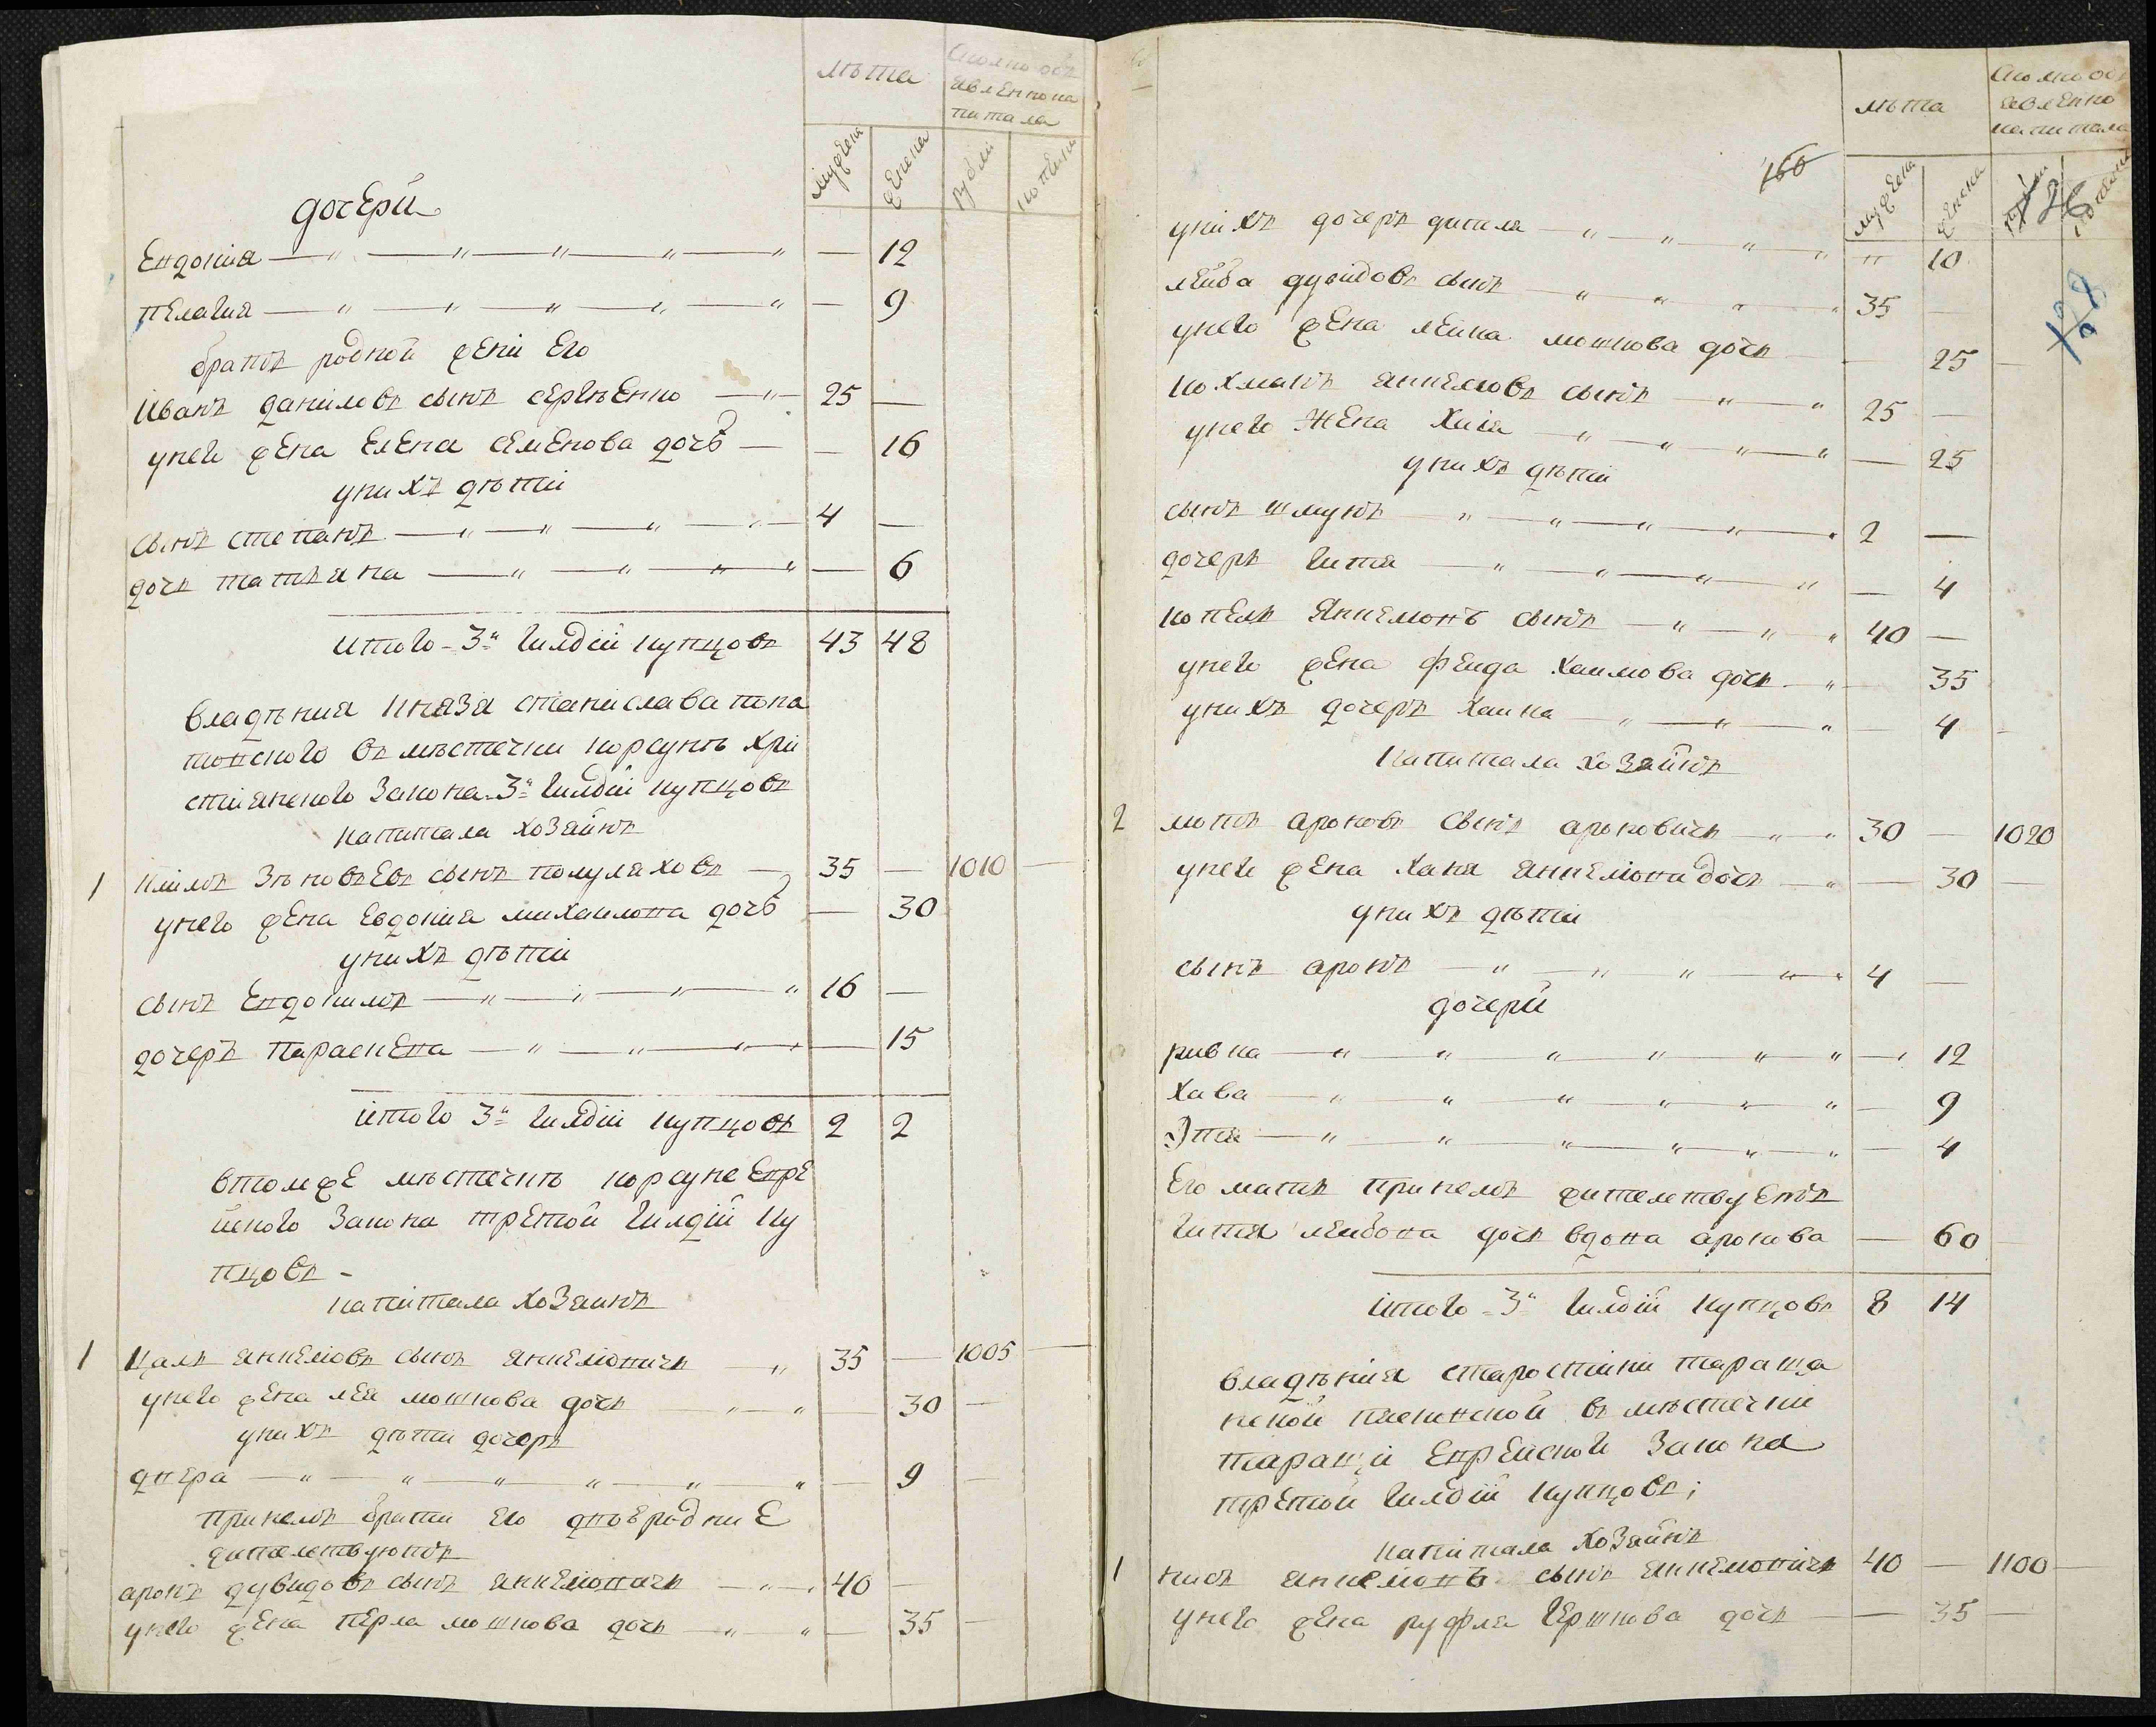 лѣта
Сколко объ
явленно ка
питала
мужеска
женска
рубли
копеики
дочери
Евдокия — — — — — — 12
пелагия — — — — — — 9
братъ родной жени Его
Иванъ даниловъ сынъ сергѣенко — 25 —
унего жена Елена семенова дочъ — — 16
унихъ дѣти
сынъ степанъ — — — — 4 —
дочъ татьяна — — — — — 6
итого 3й гилдіи купцовъ 43 48
владѣния князя станислава поня
товского въ мѣстечки корсунѣ хри
стіянского закона 3й гилдіи купцовъ
капитала хозяинъ
1 климъ зѣновъевъ сынъ полуляховъ — 35 — 1010 —
унего жена Евдокия михаилова дочъ — 30
унихъ дѣти
сынъ Евдокимъ — — — — 16 —
дочеръ параскева — — — — — 15
итого 3й гилдіи купцовъ 2 2
втомже мѣстечкѣ корсуне Евре
йского закона третой гилдіи ку
пцовъ —
капитала хозяинъ
1 Цаль янкелювъ сынъ янкелювичъ — 35 — 1005 —
унего жена лея мошкова дочъ — — 30 —
унихъ дѣти дочеръ
двера — — — — — — 9 —
принемъ брати его двоеродние
жителствуютъ
аронъ дувидовъ сынъ янкелювичъ — 40 —
унего жена перла мошкова дочъ — — 35 —
лѣта
Сколко объ
явленно
капитала
мужеска
женска
копеики
160
126
128
унихъ дочеръ — — — — 10
лейба дувидовъ сынъ — — — — 35 —
унего жена лейка мошкова дочъ — — 25 —
нохманъ янкелювъ сынъ — — 25 —
унего Жена Хая — — — — — 25
унихъ дѣти
сынъ шмукъ — — — — 2 —
дочеръ гитя — — — — — 4
копель янкелювъ сынъ — — — 40 —
унего жена фейда хаимова дочъ — — 35
унихъ дочеръ хаика — — — — 4 —
капитала хозяинъ
2 мотъ ароновъ сынъ ароновичъ — — 30 — 1020
унего жена ханя янкелюва дочъ — — 30 —
унихъ дѣти
сынъ аронъ — — — — 4 —
дочери
ривка — — — — — — — 12
хава — — — — — — — 9
Этя — — — — — — — 4
Его мать принемъ жителствуетъ
гитля лейбова дочъ вдова аронова — 60 —
итого 3й гилдіи купцовъ 8 14
владѣнія старостини тараща
нской въ мѣстечки
таращи Еврейского закона
третой гилдіи купцовъ;
капитала хозяинъ
1 янкелювъ сынъ янкелювичъ 40 — 1100 —
унего жена руфля гершкова дочъ — — 35 —